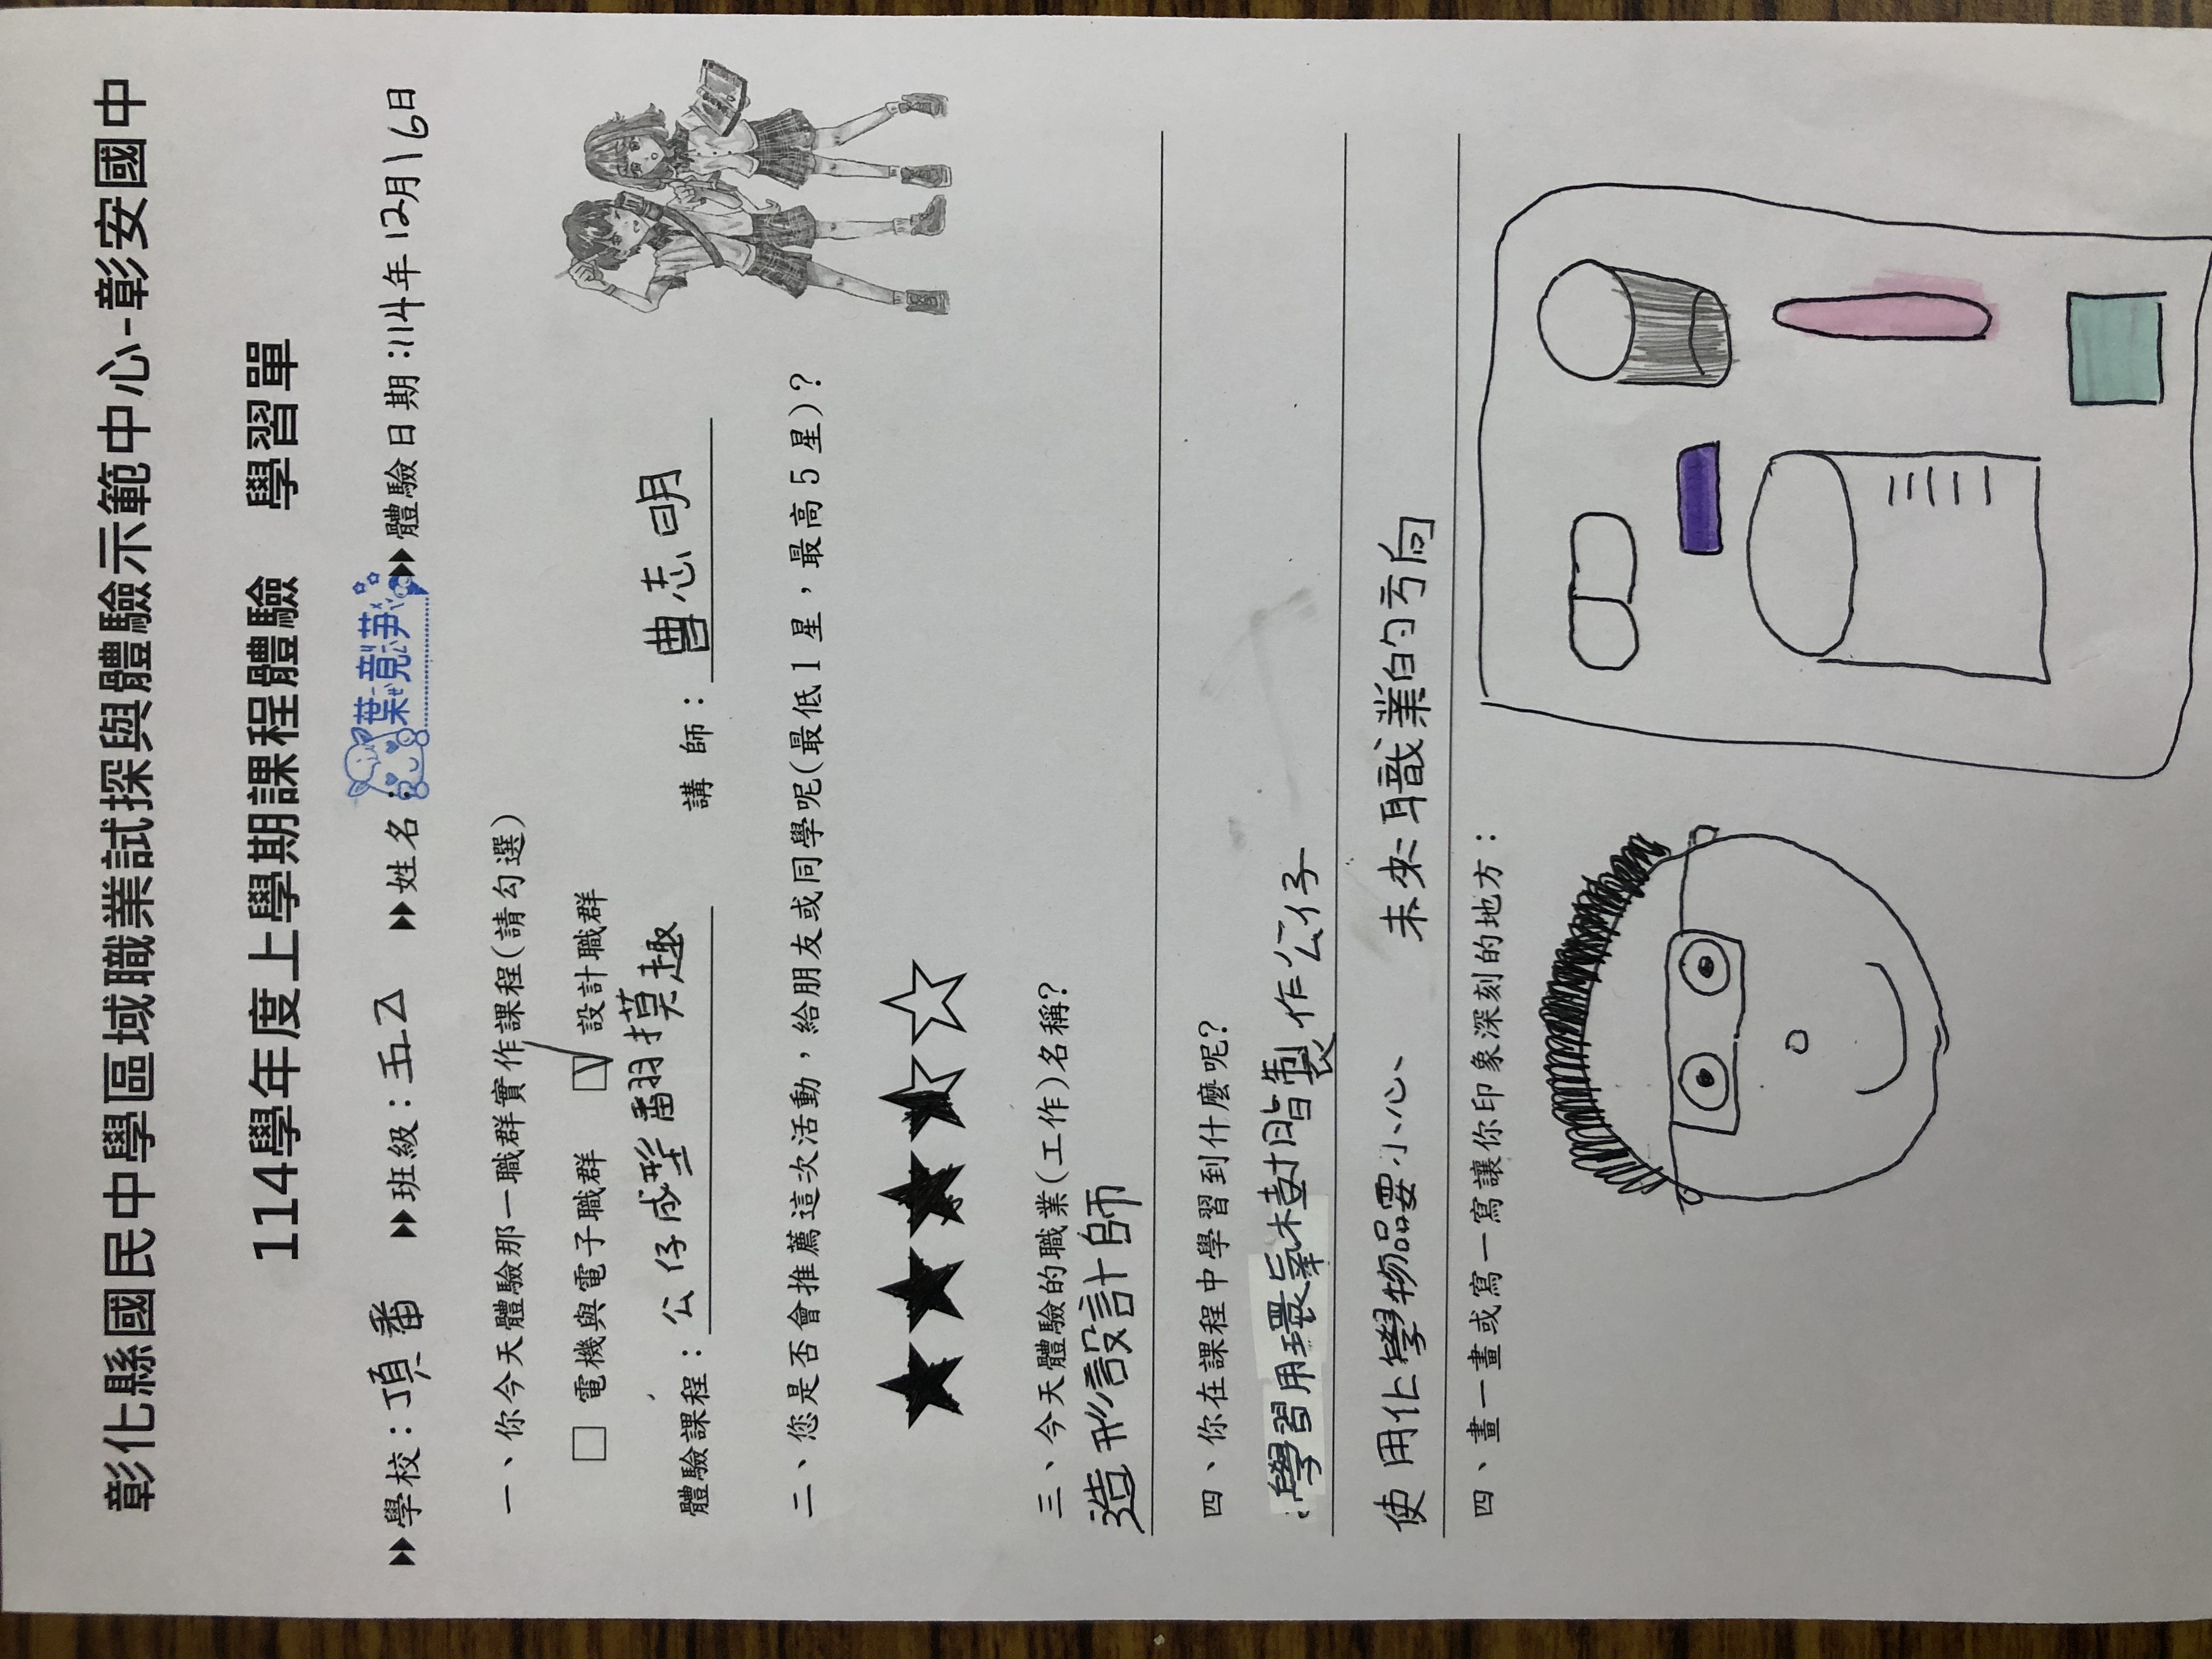 彰化縣國民中學區域職業試探與體驗示範中心-彰安國中
114學年度上學期課程體驗 學習單
▶▶學校：頂番 ▶▶班級：五乙 ▶▶姓名：葉竟尹 ▶▶體驗日期：114年12月16日
一、你今天體驗那一職群實作課程(請勾選)
□ 電機與電子職群 ☑ 設計職群
體驗課程：公仔成型翻摸趣 講師：曹志明
二、您是否會推薦這次活動，給朋友或同學呢(最低1星，最高5星)？
★★★★☆
三、今天體驗的職業(工作)名稱?
造形設計師
四、你在課程中學習到什麼呢?
學習用環氧樹脂製作公仔
使用化學物品要小心、未來職業的方向
四、畫一畫或寫一寫讓你印象深刻的地方：